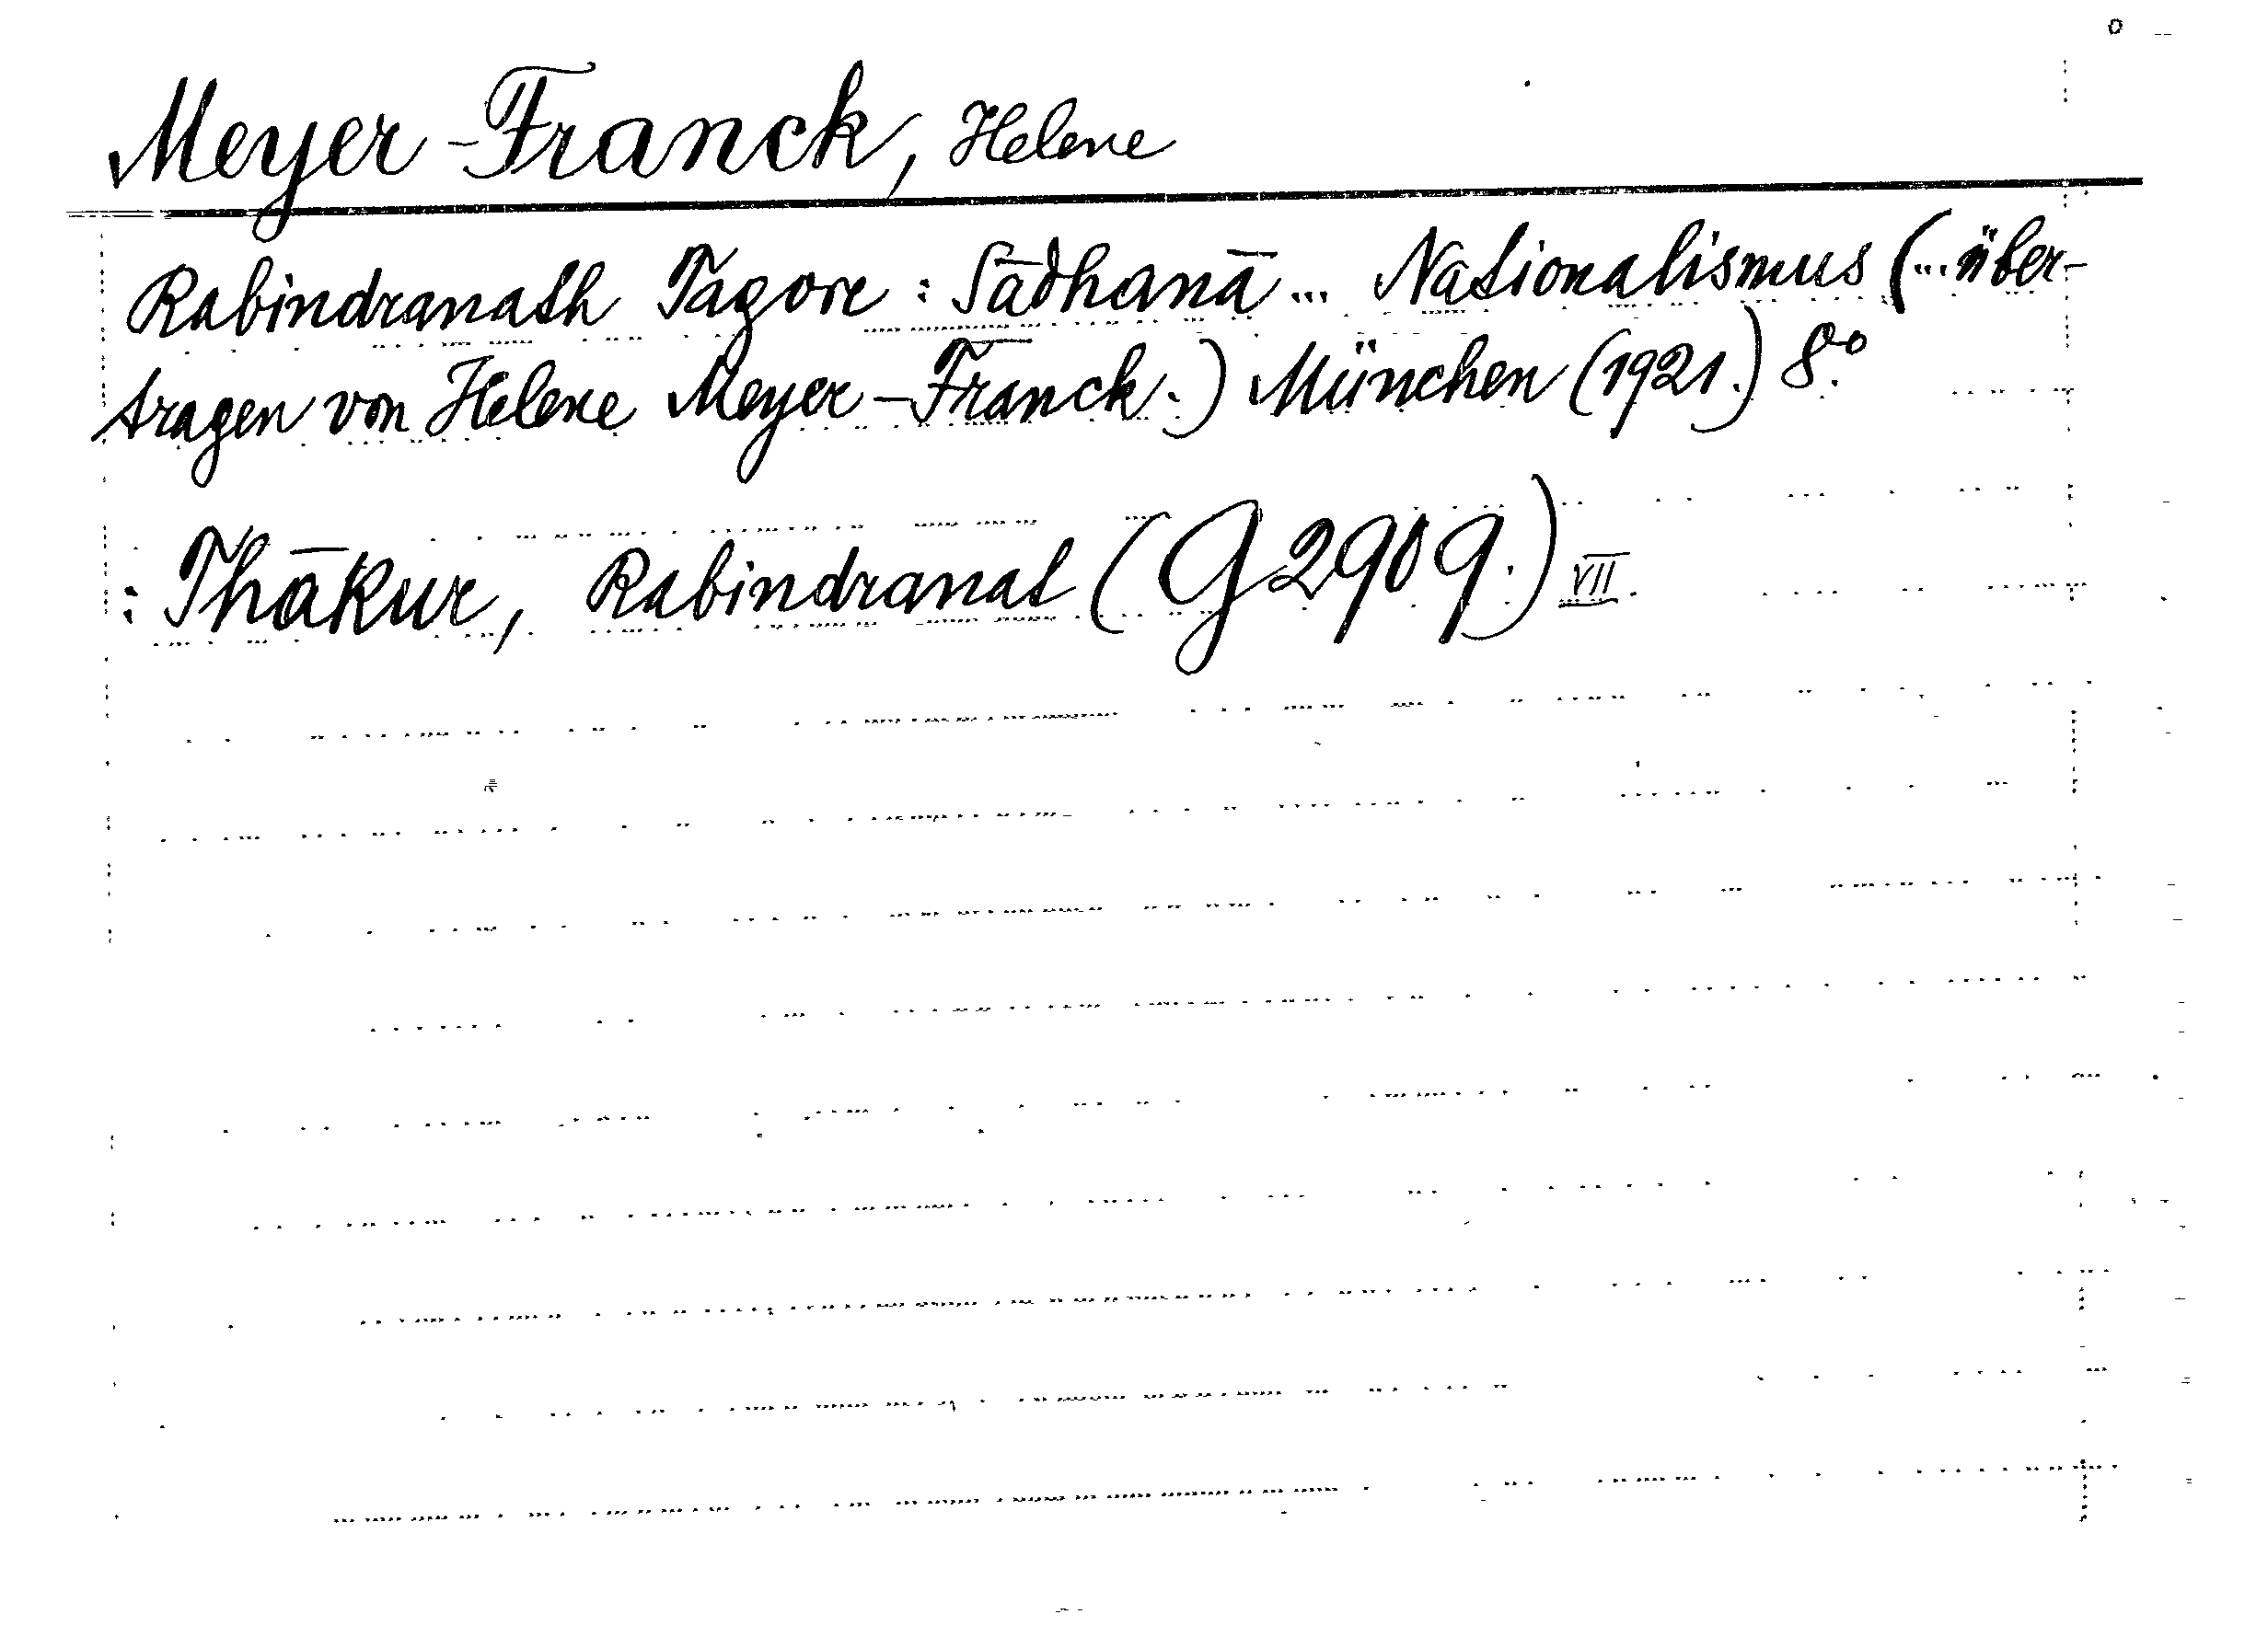 Meyer-Franck, Helene
Rabindranath Tagore: Sādhanā ... Nationalismus (... über-
tragen von Helene Meyer-Franck.) München (1921.) 8.°
: Thākur, Rabindranat (G 2909.) VII.